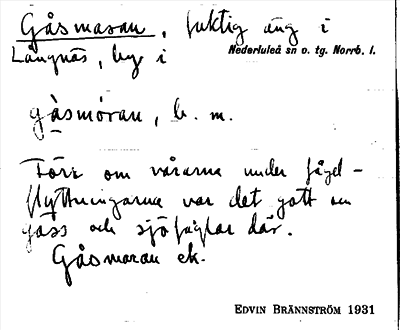 Gåsmaran, fuktig äng i
Långnäs, by i Nederluleå sn o. tg. Norrb. l.
gåsmóran, b. m.
Förr om vårarna under fågel-
flyttningarna var det gott om
gäss och sjöfåglar där.
Gåsmaran ek.
EDVIN BRÄNNSTRÖM 1931